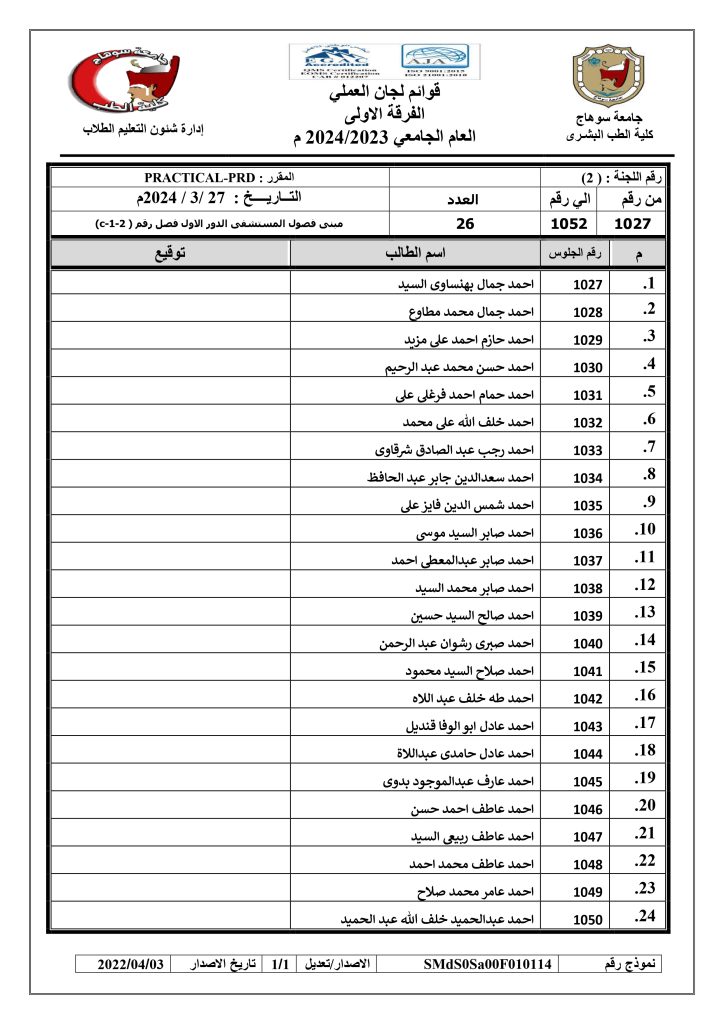 جامعة سوهاج
كلية الطب
EGAC
Accredited
QMS Certification
EOMS Certification
CAB # 012207
AJA
ISO 9001:2015
ISO 21001:2018
جامعة سوهاج
كلية الطب البشرى
قوائم لجان العملي
الفرقة الاولى
العام الجامعي 2024/2023 م
إدارة شئون التعليم الطلاب
رقم اللجنة : ( 2) المقرر : PRACTICAL-PRD
من رقم الي رقم العدد التـاريـــخ : 27 /3 / 2024م
1027 1052 26 مبنى فصول المستشفى الدور الاول فصل رقم ( c-1-2)
م رقم الجلوس اسم الطالب توقيع
1. 1027 احمد جمال بهنساوى السيد
2. 1028 احمد جمال محمد مطاوع
3. 1029 احمد حازم احمد على مزيد
4. 1030 احمد حسن محمد عبد الرحيم
5. 1031 احمد حمام احمد فرغلى على
6. 1032 احمد خلف الله على محمد
7. 1033 احمد رجب عبد الصادق شرقاوى
8. 1034 احمد سعدالدين جابر عبد الحافظ
9. 1035 احمد شمس الدين فايز على
10. 1036 احمد صابر السيد موسى
11. 1037 احمد صابر عبدالمعطى احمد
12. 1038 احمد صابر محمد السيد
13. 1039 احمد صالح السيد حسين
14. 1040 احمد صبرى رشوان عبد الرحمن
15. 1041 احمد صلاح السيد محمود
16. 1042 احمد طه خلف عبد اللاه
17. 1043 احمد عادل ابو الوفا قنديل
18. 1044 احمد عادل حامدى عبداللاة
19. 1045 احمد عارف عبدالموجود بدوى
20. 1046 احمد عاطف احمد حسن
21. 1047 احمد عاطف ربيعى السيد
22. 1048 احمد عاطف محمد احمد
23. 1049 احمد عامر محمد صلاح
24. 1050 احمد عبدالحميد خلف الله عبد الحميد
نموذج رقم SMdS0Sa00F010114 الاصدار/تعديل 1/1 تاريخ الاصدار 2022/04/03